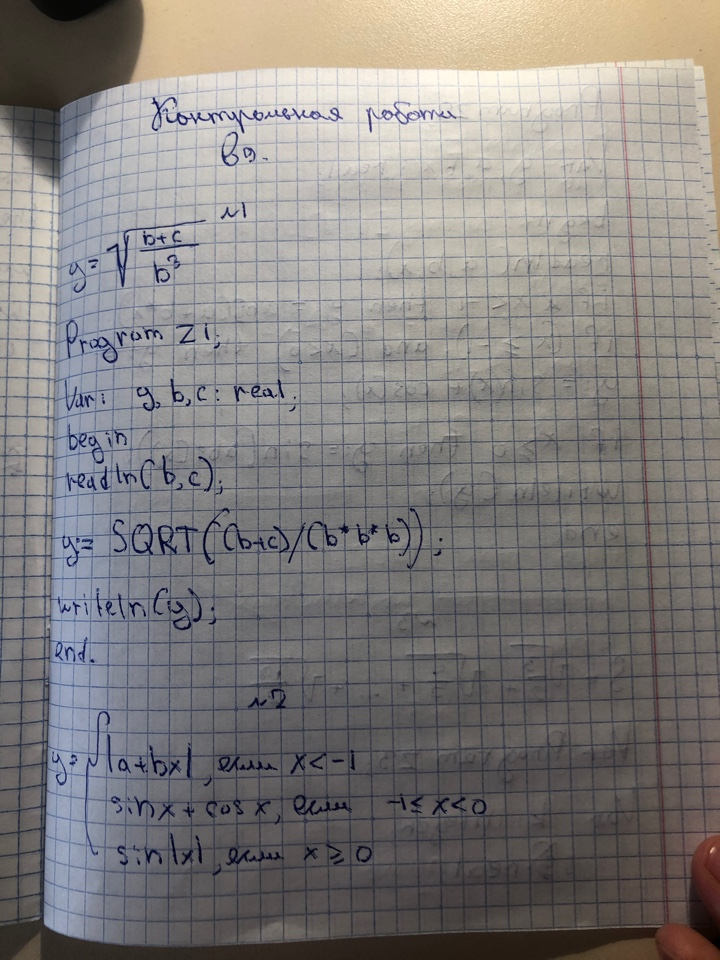 Контрольная работа
В9.
№1
y=√(b+c)/b³
Program Z1;
Var: y, b, c: real;
begin
readln(b,c);
y:= SQRT((b+c)/(b*b*b));
writeln(y);
end.
№2
y={|a+bx|, если x<-1
sinx + cosx, если -1≤x<0
sin|x|, если x≥0